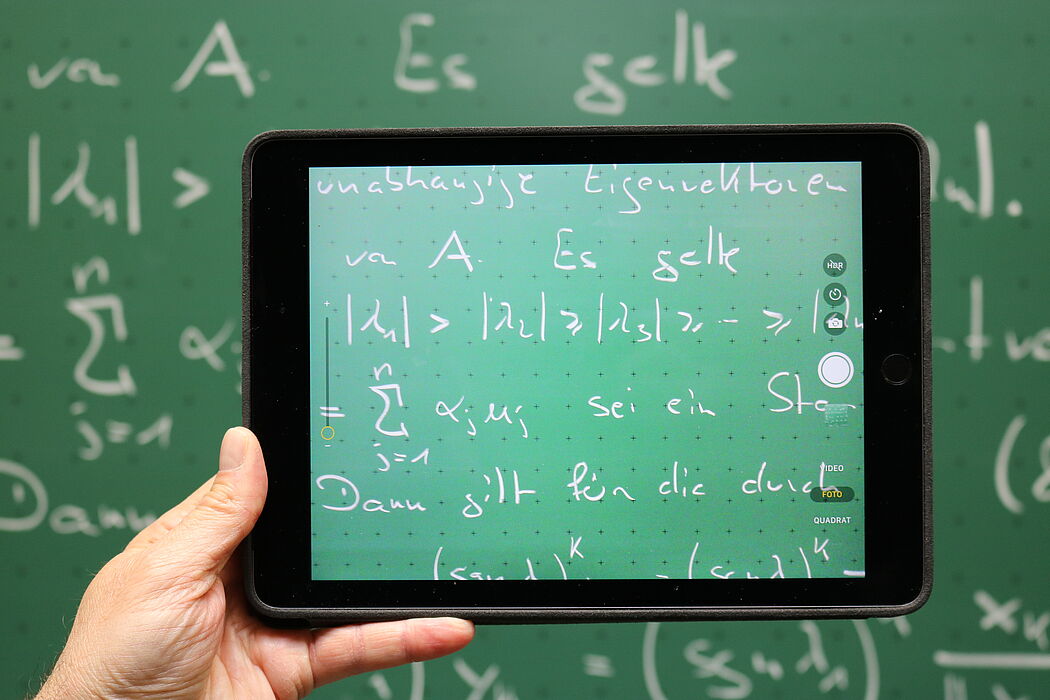 von A. Es gelte
|λ₁| >
n
= ∑ α
j=1
Dann
unabhängige Eigenvektoren
von A. Es gelte
|λ₁| > |λ₂| ≥ |λ₃| ≥ - ≥ |λn
n
= ∑ αⱼ uⱼ sei ein Sta
j=1
Dann gilt für die durch
(sgn λ )ᴷ = (sgn λ )ᴷ
HDR
VIDEO
FOTO
QUADRAT
= (sgn λ₁)